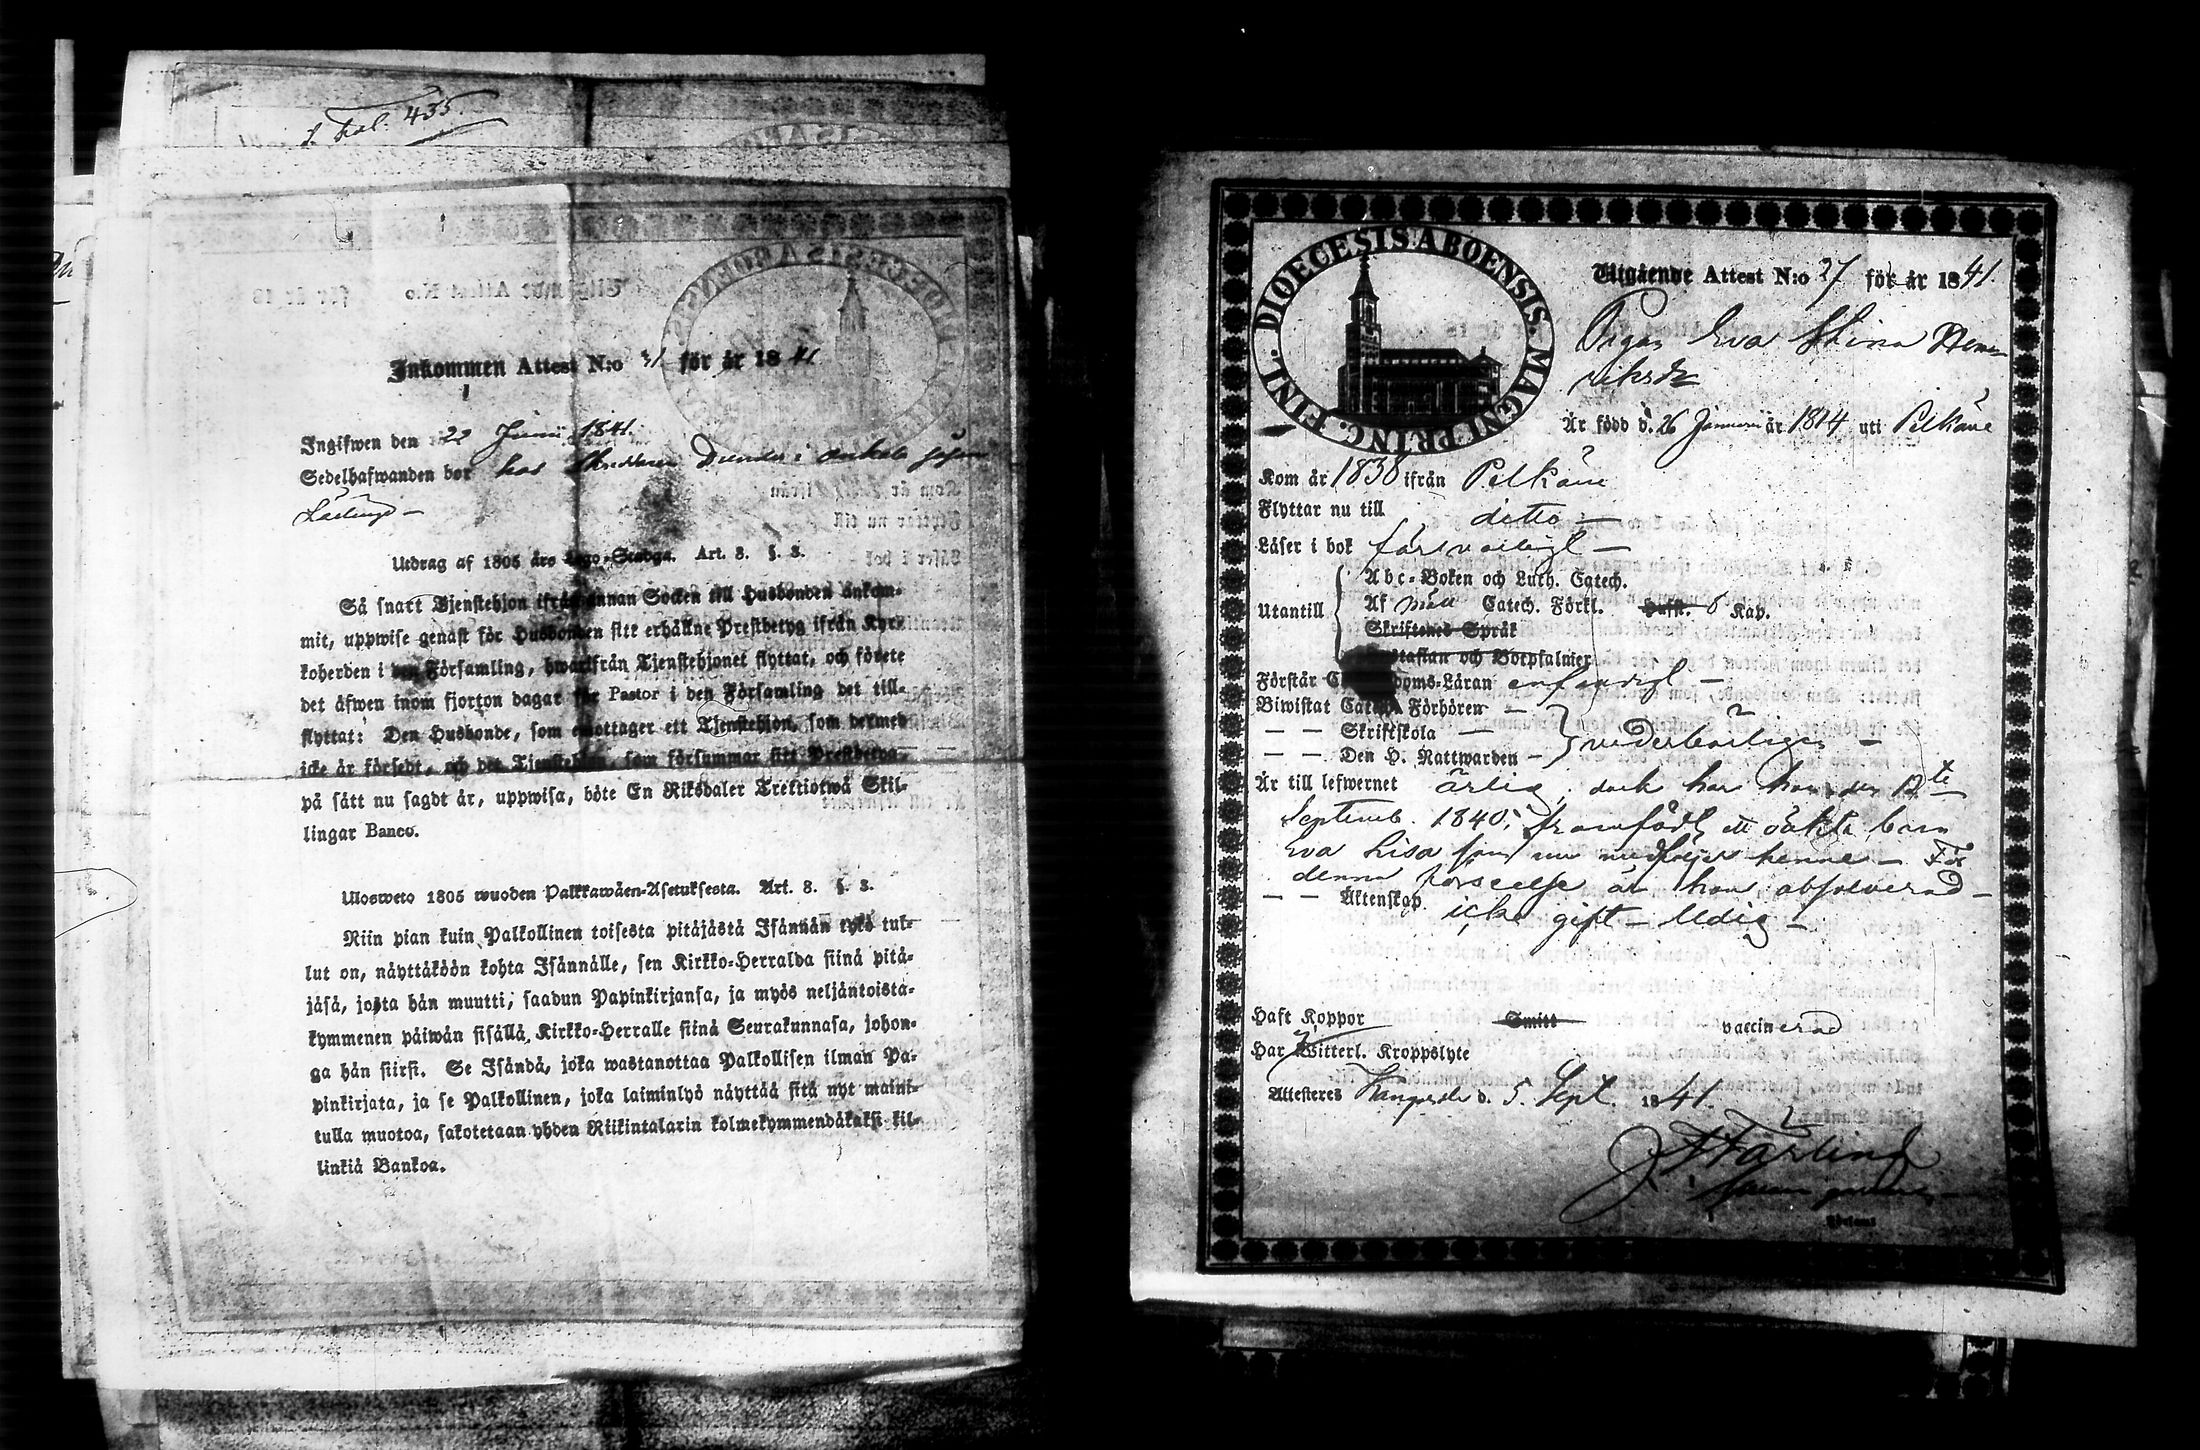 f. Fol: 435.
Inkommen Attest N:o 31 för år 1841
Ingifwen den 22 Junii 1841.
Sedelhafwanden bor hos
Utdrag af 1805 års Lego-Stadga. Art. 8. §. 3.
Så snart Tjenstehjon ifrån annan Socken till Husbonden ankom-
mit, uppwise genast för Husbonden sitt erhållne Prestbetyg ifrån Kyr-
koherden i den Församling, hwarifrån Tjenstehjonet flyttat, och förete
det äfwen inom fjorton dagar för Pastor i den Församling det till-
flyttat: Den Husbonde, som emottager ett Tjenstehjon, som dermed
icke är försedt, och det Tjenstehjon, som försummar sitt Prestbetyg,
på sätt nu sagdt är, uppwisa, böte En Riksdaler Trettiotwå Skil-
lingar Banco.
Ulosweto 1805 wuoden Palkkawäen-Asetuksesta. Art. 8. §. 3.
Niin pian kuin Palkollinen toisesta pitäjästä Isännän tykö tul-
lut on, näyttäköön kohta Isännälle, sen Kirkko-Herralda siinä pitä-
jäsä, josta hän muutti, saadun Papinkirjansa, ja myös neljäntoista-
kymmenen päiwän sisällä, Kirkko-Herralle siinä Seurakunnasa, johon-
ga hän siirsi. Se Isändä, joka wastanottaa Palkollisen ilman Pa-
pinkirjata, ja se Palkollinen, joka laiminlyö näyttää sitä nyt maini-
tulla muotoa, sakotetaan yhden Riikintalarin kolmekymmendäkaksi kil-
linkiä Bankoa.
DIOECESIS ABOENSIS. MAGNI PRINC. FINL.
Utgående Attest N:o 37 för år 1841.
Pigan Eva Stina Hen
riksdr
Är född d. 26 Januarii år 1814 uti Pelkäne
Kom år 1838 ifrån Pelkäne
Flyttar nu till ditto
Läser i bok försvarligt
Abc-Boken och Luth. Catech.
Utantill Af Catech. Förkl. Hust. 6 Kap.
Skriftenes Språk
Hustaflan och Botpsalmer
Förstår Christendoms-Läran enfaldigt
Biwistat Catech. Förhören
— — Skriftskola
— — Den H. Nattwarden vederbörligen
Är till lefwernet ärlig, dock har hon den 12te
Septemb. 1840, framfödt ett oäkta barn
Eva Lisa som nu medföljer henne — För
denna förseelse är hon absolverad
— — Äktenskap icke gift — ledig
Haft Koppor Smitt vaccinerad
Har Witterl. Kroppslyte
Attesteres d. 5. Sept. 1841.